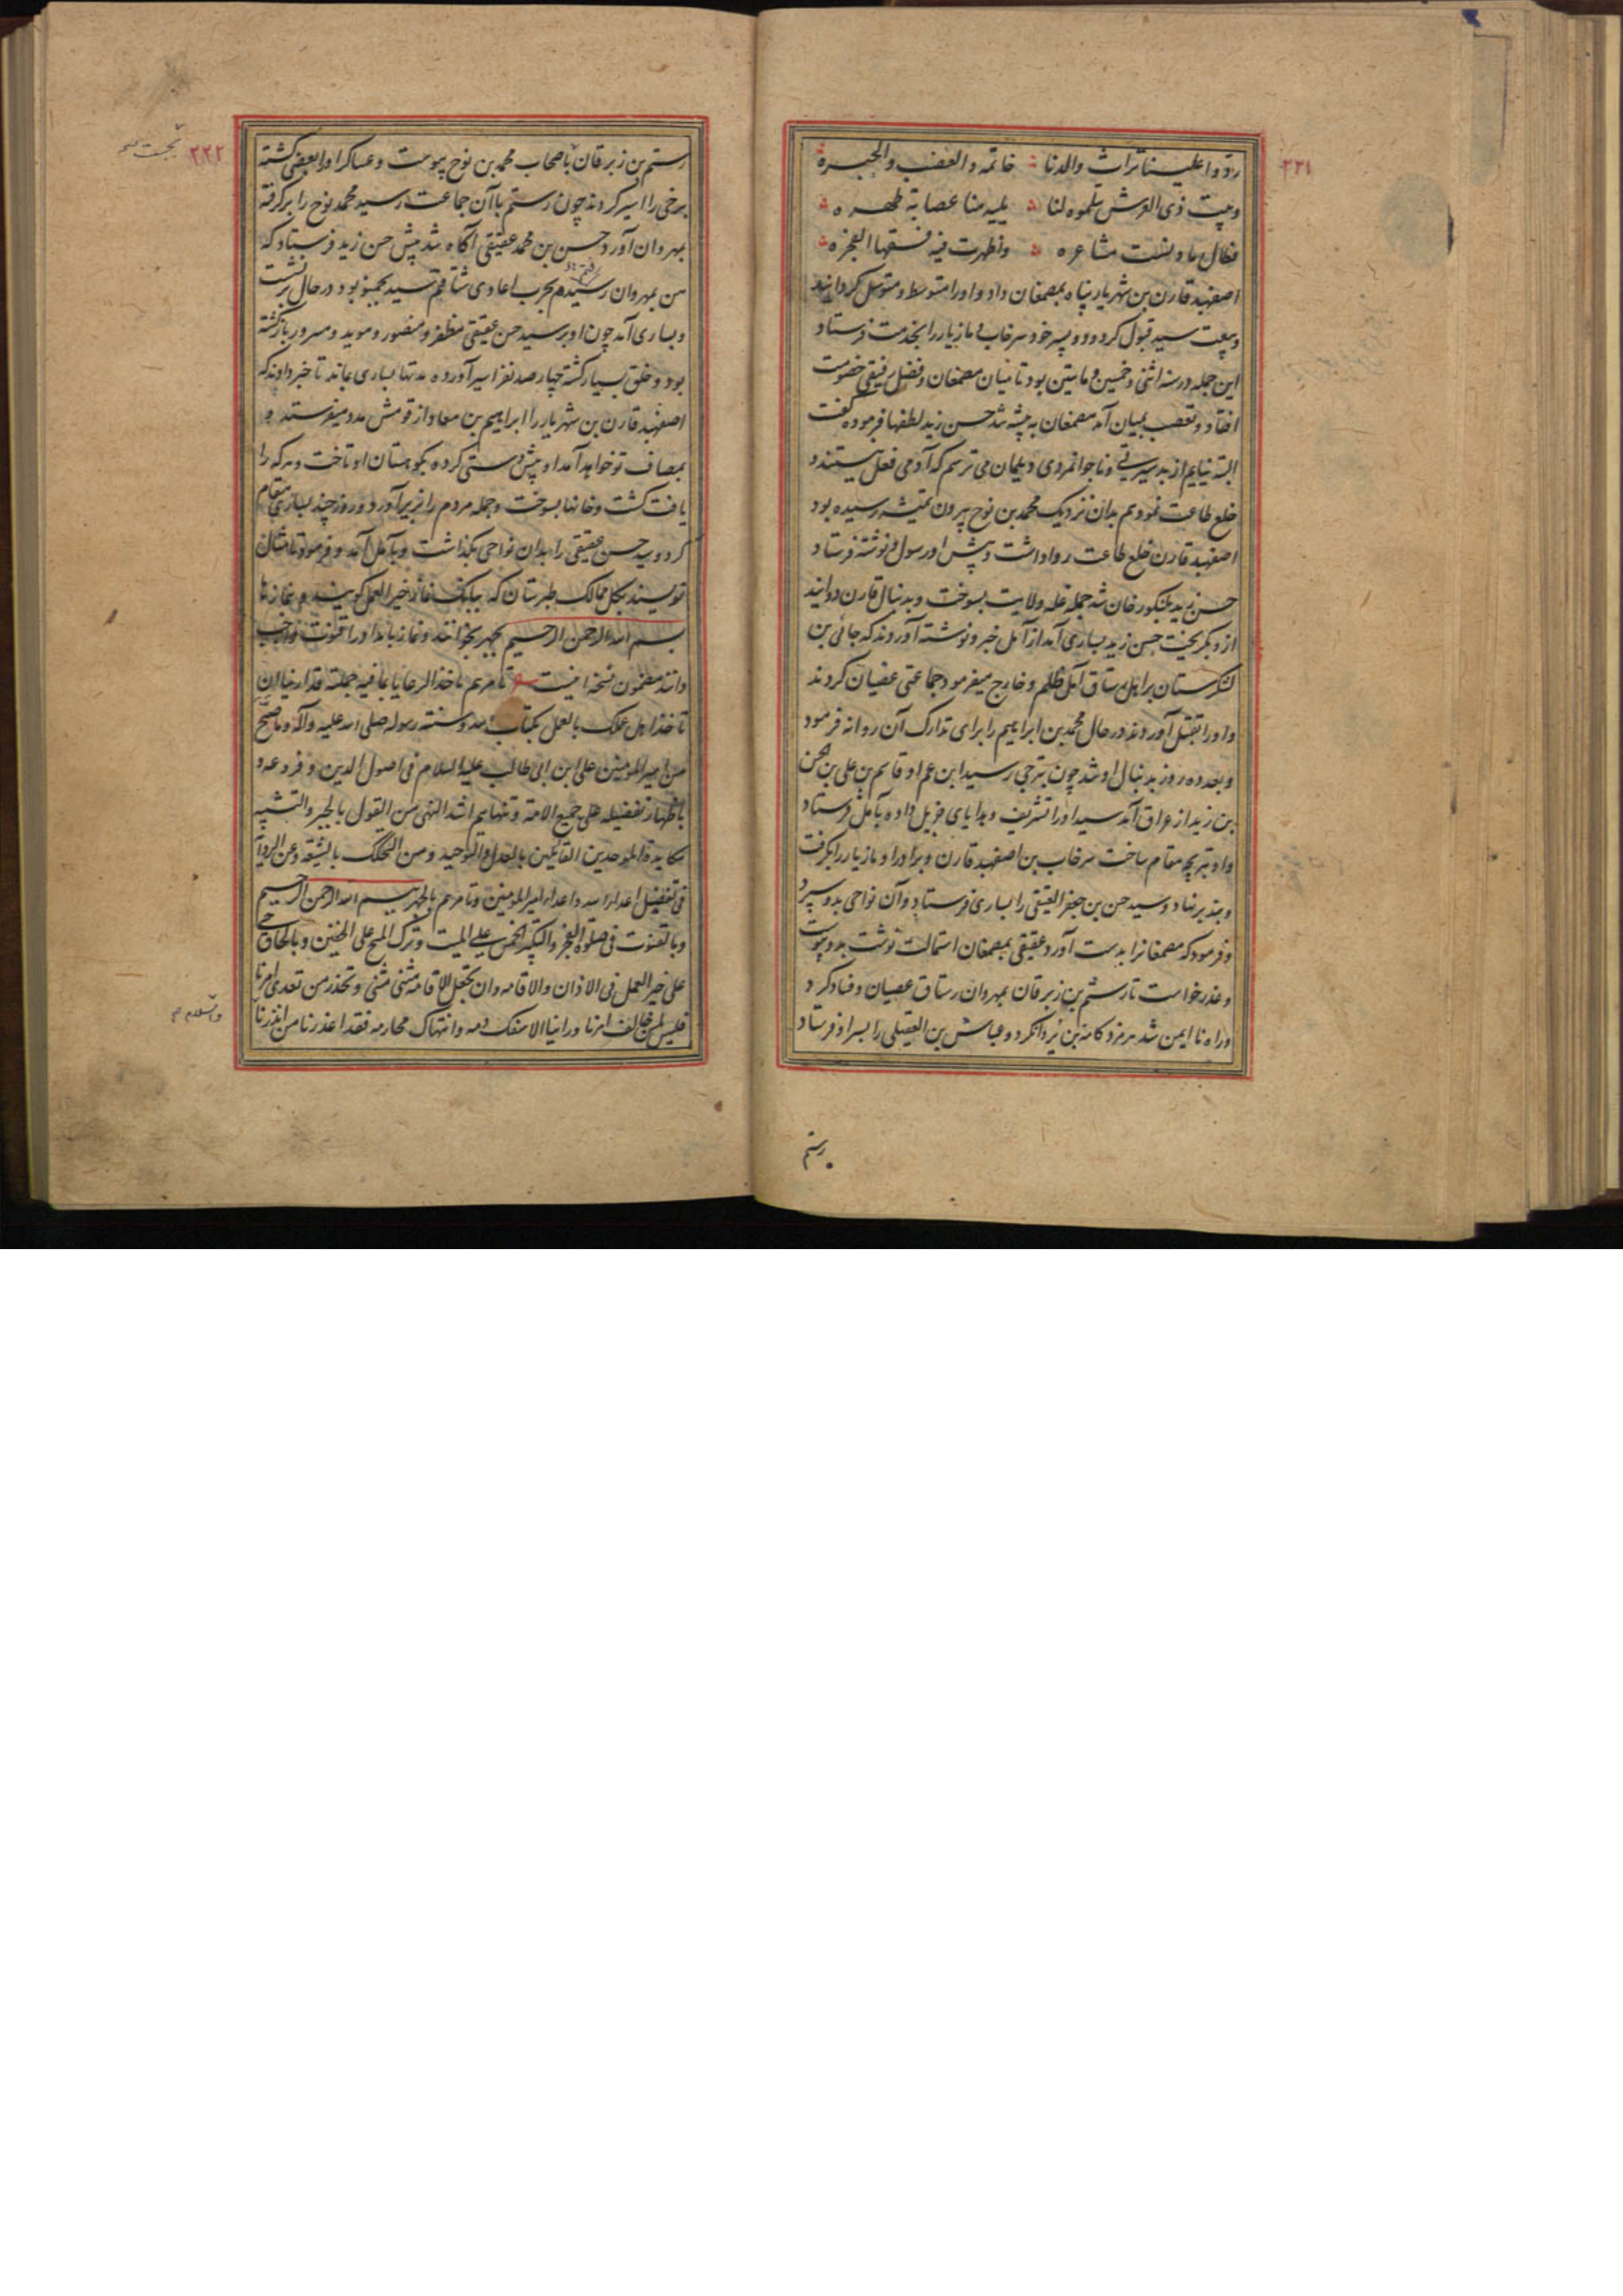 ۲۲۱
ردوا علینا تراث والدنا خاتمه والعضب والحبره
وبیت ذی العرش سلموه لنا یلیه منا عصابة طهره
فطال ما دنست مشاعره وأظهرت فیه فسقها الفجره
اصفهبد قارن بن شهریار پناه بمصمغان داد و اورا متوسط و متوسل گردانید
و بیعت سید قبول کرد و دو پسر خود سرخاب و مازیار را بخدمت فرستاد
این جمله در سنه اثنی و خمسین و مایتین بود تا میان مصمغان و فضل رفیقی خصومت
افتاد و تعصب بمیان آمد مصمغان به پیشه شد حسن زید لطفها فرمود گفت
البته نیایم از بد سیرتی و ناجوانمردی دیلمان می ترسم که آدمی فعل نیستند و
خلع طاعت نمودیم بدان نزدیک محمد بن نوح بیرون تمیشه رسیده بود
اصفهبد قارن خلع طاعت روا داشت و پیش او رسول و نوشته فرستاد
حسن زید بلنکور خان شد جمله غله ولایت بسوخت و بدنبال قارن دوانید
از و بگریخت حسن زید بساری آمد از آمل خبر و نوشته آوردند که جائی بن
لشکرستان بر اهل رستاق آمل ظلم و خارج میفرمود جماعتی عصیان کردند
و اورا بقتل آوردند در حال محمد بن ابراهیم را برای تدارک آن روانه فرمود
و بعد ده روز بدنبال او شد چون بترجی رسید ابن عم او قاسم بن علی بن حسن
بن زید از عراق آمد سید اورا تشریف و هدایای جزیل داده بآمل فرستاد
و او بترجی مقام ساخت سرخاب بن اصفهبد قارن و برادر او مازیار را بگرفت
و بند بر نهاد و سید حسن بن جعفر العقیقی را بساری فرستاد و آن نواحی بدو سپرد
و فرمود که مصمغانرا بدست آورد عقیقی بمصمغان استمالت نوشت بدو پیوست
و عذر خواست تا رستم بن زبرقان بمهروان رستاق عصیان و فساد کرد
و راه نا ایمن شد هرمزد کامه بن یزدانکرد و عباس بن العقیلی را بسر او فرستاد
رستم
۲۲۲
رستم بن زبرقان باصحاب محمد بن نوح پیوست و عساکر اورا بعضی کشته
برخی را اسیر کردند چون رستم با آن جماعت رسید محمد نوح را بر گرفته
بمهروان آورد حسن بن محمد عقیقی آگاه شد پیش حسن زید فرستاد که
من بمهروان رسیدم بحرب اعادی شتافتم سید بجمنو بود در حال بر نشست
و بساری آمد چون او برسید حسن عقیقی مظفر و منصور و موید و مسرور بازگشته
بود و خلق بسیار کشته چهارصد نفر اسیر آورده مدتها بساری بماند تا خبر دادند که
اصفهبد قارن بن شهریار را ابراهیم بن معاذ از قومش مدد میفرستد و
بمصاف تو خواهد آمد او پیش دستی کرده بکوهستان او تاخت و هر که را
یافت کشت و خانها بسوخت و جمله مردم را بزیر آورد و روز چند بساری مقام
کرد و سید حسن عقیقی را بدان نواحی بگذاشت و بآمل آمد و فرمود تا مثال
نویسند بکل ممالک طبرستان که ببانک نماز خیر العمل گویند و نمازها
بسم الله الرحمن الرحیم بجهر بخوانند و نماز بامداد را قنوت واجب
دانند مضمون نسخه اینست تامرهم تاخذ الرعایا بما فیه جملته قد رأینا ان
تاخذ اهل عملک بالعمل بکتاب الله و سنته رسوله صلی الله علیه وآله و ما صح
من امیر المومنین علی ابن ابی طالب علیه السلام فی اصول الدین و فروعه و
باظهار تفضیله علی جمیع الامة و تنهاهم اشد النهی من القول بالجبر والتشبیه
مکایدة الموحدین القایلین بالعدل والتوحید و من التحکک بالشیعه وعن الروایة
فی تفضیل اعداء الله و اعداء امیر المومنین وتامرهم بالجهر بسم الله الرحمن الرحیم
وبالقنوت فی صلوة الفجر والتکبیر الخمس علی المیت وترک المسح علی الخفین وبالحاق حی
علی خیر العمل فی الاذان والاقامه وان تجعل الاقامه مثنی مثنی وتحذر من تعدی امرنا
فلیس لمن خالف امرنا ورأینا الا سفک دمه وانتهاک محارمه فقد اعذرنا من انذرنا